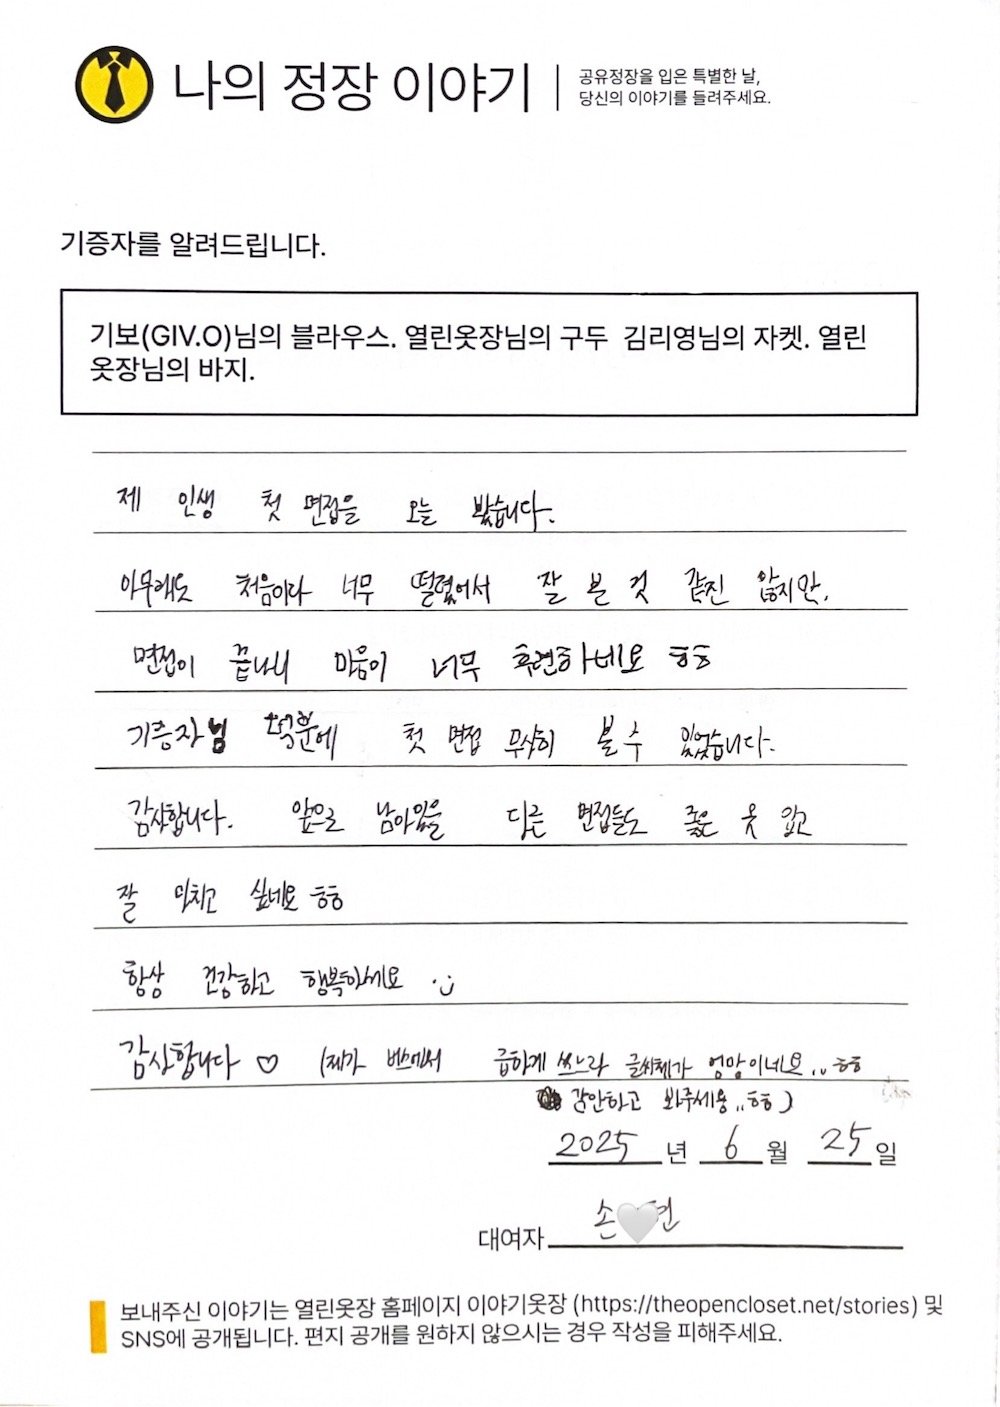 나의 정장 이야기
공유정장을 입은 특별한 날,
당신의 이야기를 들려주세요.
기증자를 알려드립니다.
기보(GIV.O)님의 블라우스. 열린옷장님의 구두 김리영님의 자켓. 열린
옷장님의 바지.
제 인생 첫 면접을 오늘 봤습니다.
아무래도 처음이라 너무 떨렸어서 잘 본 것 같진 않지만,
면접이 끝나니 마음이 너무 후련하네요 ㅎㅎ
기증자님 덕분에 첫 면접 무사히 볼 수 있었습니다.
감사합니다. 앞으로 남아있을 다른 면접들도 좋은 옷 입고
잘 마치고 싶네요 ㅎㅎ
항상 건강하고 행복하세요 :)
감사합니다 ♡ (제가 버스에서 급하게 쓰느라 글씨체가 엉망이네요.. ㅎㅎ
감안하고 봐주세용..ㅎㅎ)
2025 년 6 월 25 일
대여자 손 현
보내주신 이야기는 열린옷장 홈페이지 이야기옷장 (https://theopencloset.net/stories) 및
SNS에 공개됩니다. 편지 공개를 원하지 않으시는 경우 작성을 피해주세요.